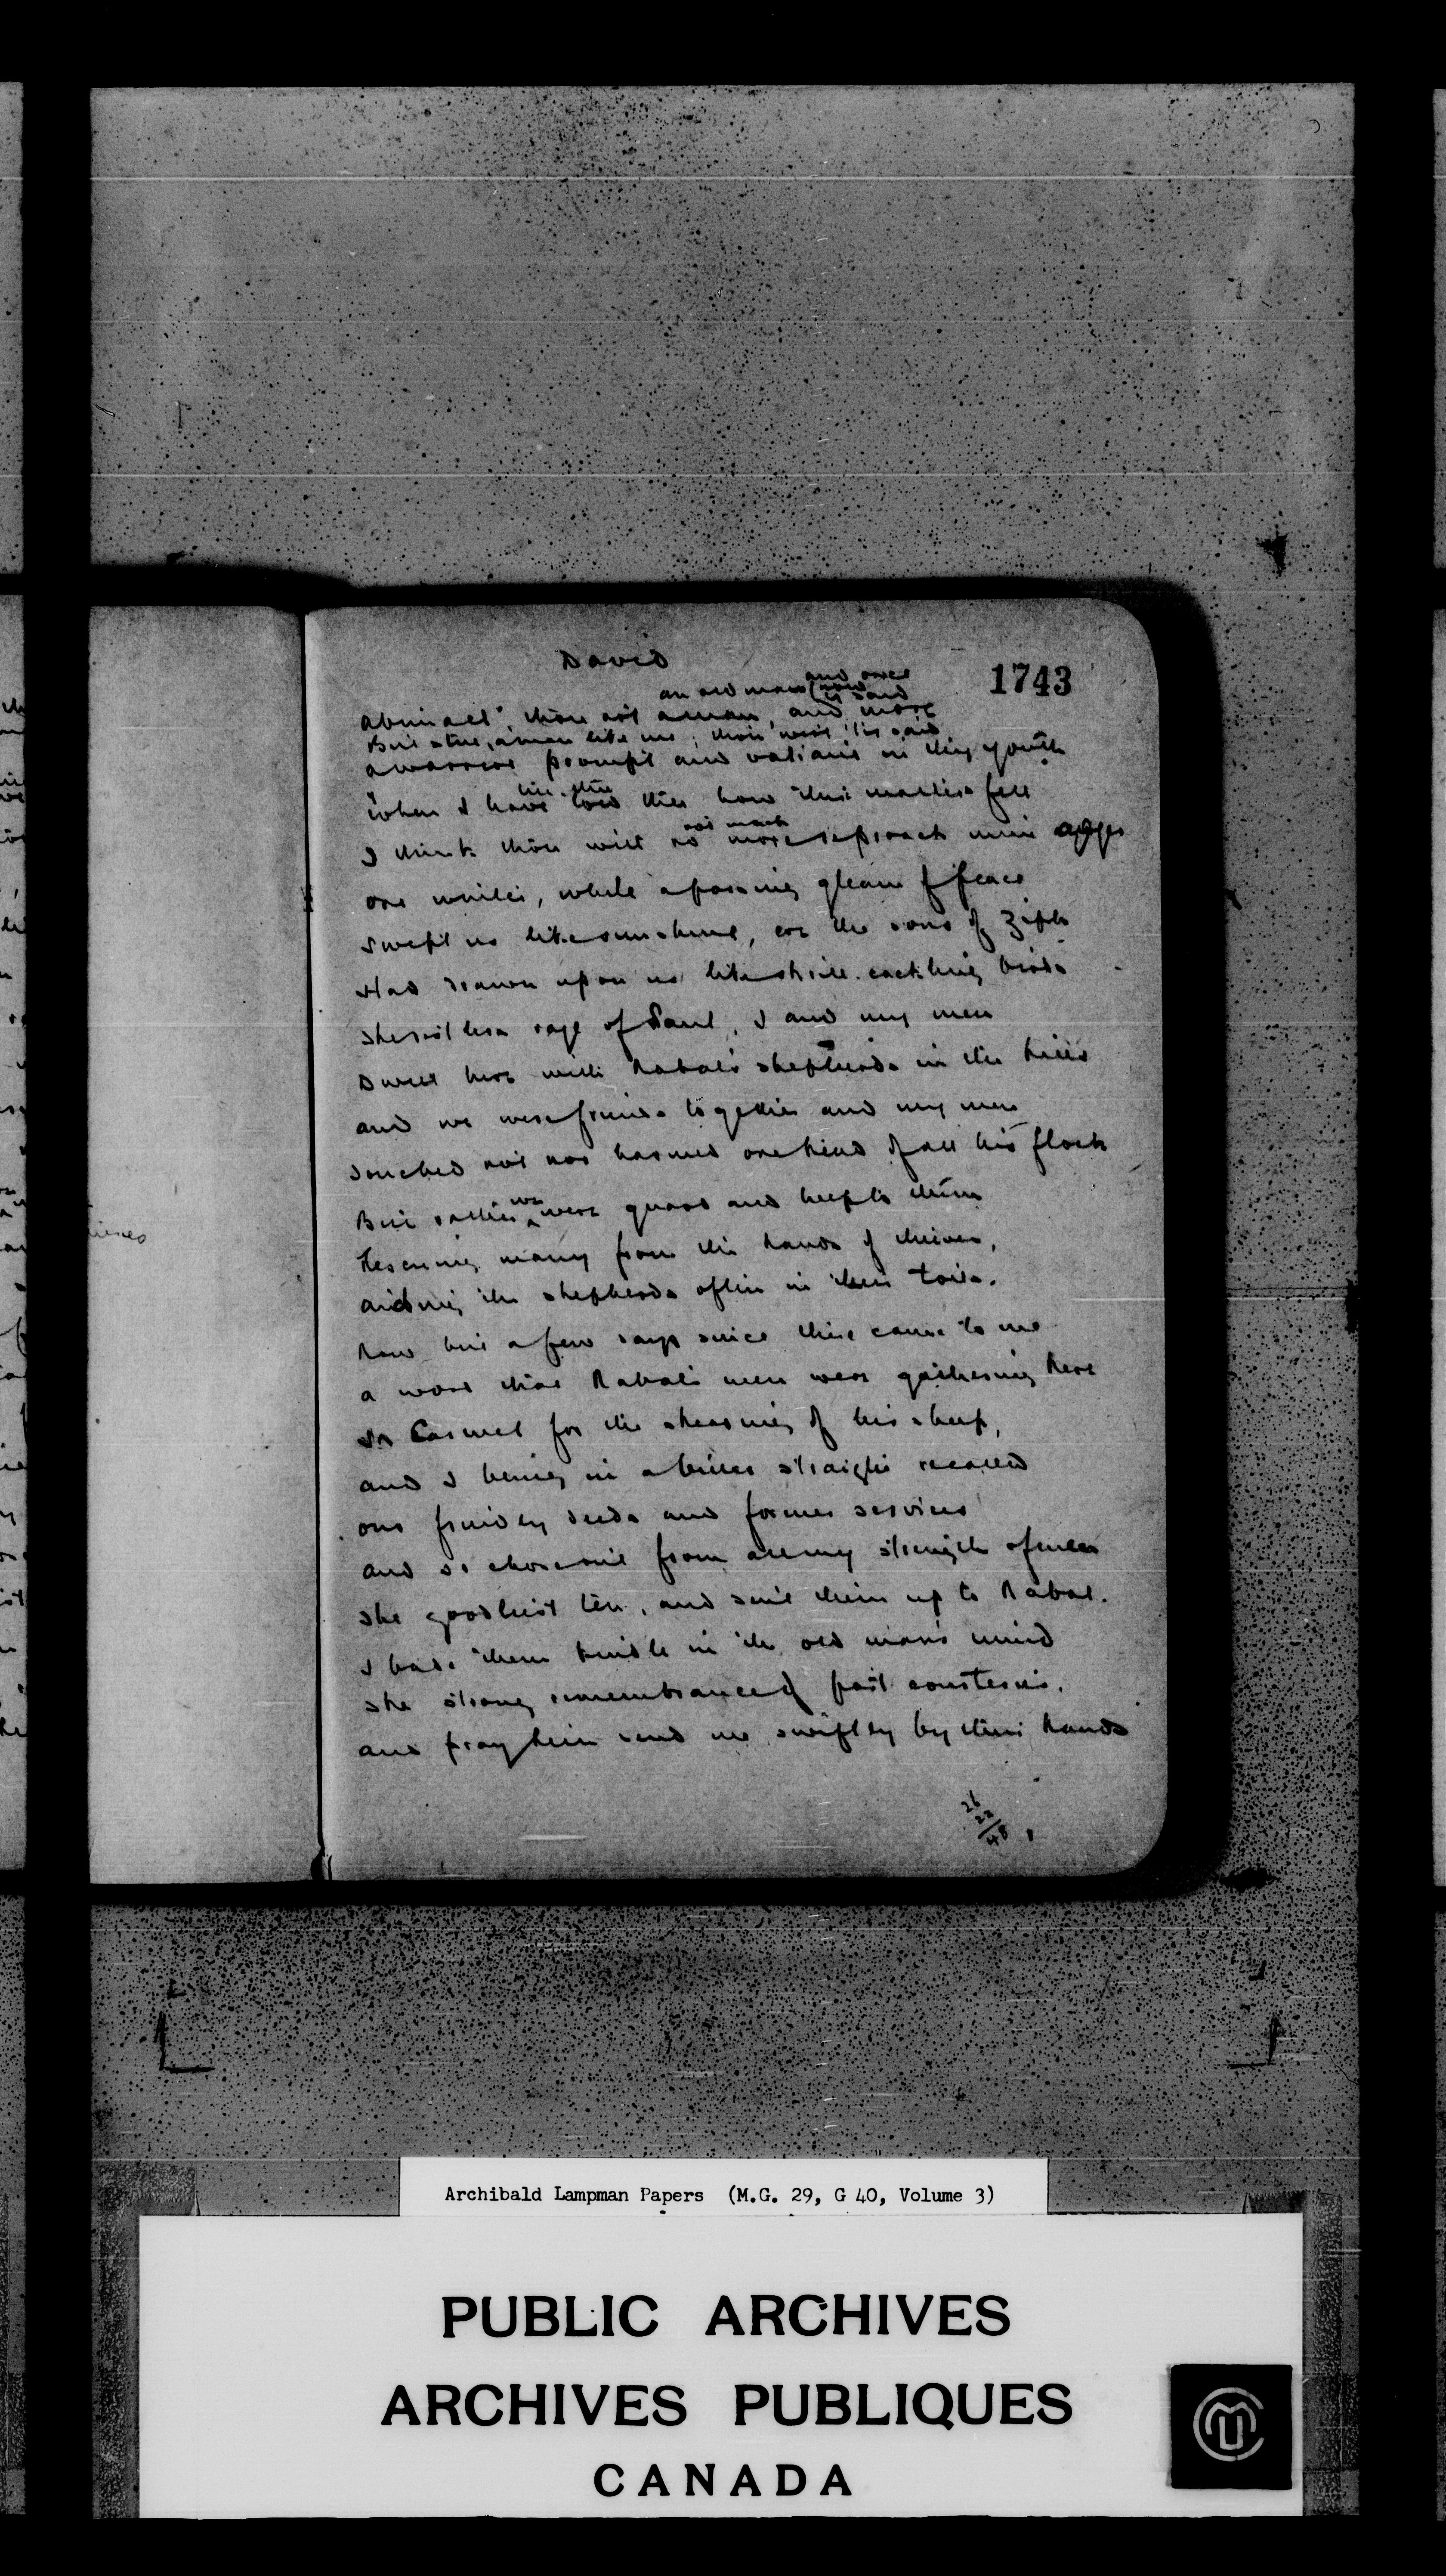 David
1743
and once
an old man (now
is said
Abinael, thou art a man, and more
But still, a man like me; thou wert 'tis said
A warrior prompt and valiant in thy youth
like thee
When I have told thee how this matter fell
not much
I think thou wilt no more reproach mine anger
One while, while a passing gleam of peace
Swept us like sunshine, ere the sons of Ziph
Had drawn upon us like shrill cackling birds
The restless rage of Saul, I and my men
Dwelt here with Nabal's shepherds in the hills
And we were friends together and my men
Touched not nor harmed one head of all his flock
we
But rather were guard and help to them
Rescuing many from the hands of thieves,
Aiding the shepherds often in their toils.
Now but a few days since there came to me
A word that Nabal's men were gathering here
In Carmel for the shearing of his sheep,
And I being in a bitter straight recalled
Our friendly deeds and former services
And so chose out from all my strength of men
The goodliest ten, and sent them up to Nabal.
I bade them kindle in the old man's mind
The strong remembrance of past courtesies,
And pray him send me swiftly by their hands
26
22
48
Archibald Lampman Papers (M.G. 29, G 40, Volume 3)
PUBLIC ARCHIVES
ARCHIVES PUBLIQUES
CANADA